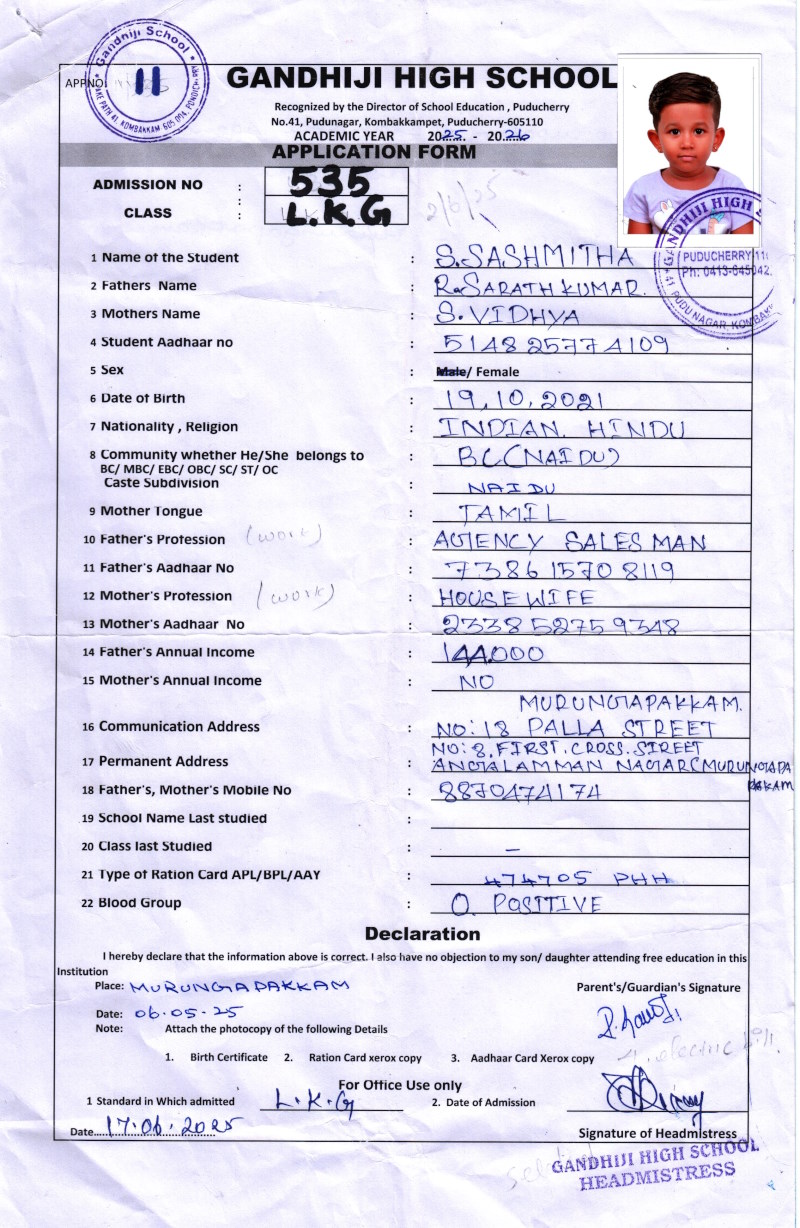 Gandhiji School
11
APPNO:
GANDHIJI HIGH SCHOOL
Recognized by the Director of School Education , Puducherry
No.41, Pudunagar, Kombakkampet, Puducherry-605110
ACADEMIC YEAR 2025 - 2026
APPLICATION FORM
ADMISSION NO : 535
CLASS : L.K.G
2/6/25
GANDHIJI HIGH
PUDUCHERRY
41 PUDU NAGAR, KOMBAK
1 Name of the Student : S.SASHMITHA
2 Fathers Name : R.SARATH KUMAR.
3 Mothers Name : S.VIDHYA
4 Student Aadhaar no : 514825774109
5 Sex : Male/ Female
6 Date of Birth : 19,10,2021
7 Nationality , Religion : INDIAN. HINDU
8 Community whether He/She belongs to : BC(NAIDU)
BC/ MBC/ EBC/ OBC/ SC/ ST/ OC
Caste Subdivision : NAIDU
9 Mother Tongue : TAMIL
10 Father's Profession (work) : AGENCY SALES MAN
11 Father's Aadhaar No : 738615708119
12 Mother's Profession (work) : HOUSE WIFE
13 Mother's Aadhaar No : 233852759348
14 Father's Annual Income : 144000
15 Mother's Annual Income : NO
MURUNGAPAKKAM.
16 Communication Address : NO:18 PALLA STREET
NO:8, FIRST.CROSS.STREET
17 Permanent Address : ANGALAMMAN NAGAR(MURUNGAPA
KKAM
18 Father's, Mother's Mobile No : 8870474174
19 School Name Last studied :
20 Class last Studied : –
21 Type of Ration Card APL/BPL/AAY : 474705 PHH
22 Blood Group : O. POSITIVE
Declaration
I hereby declare that the information above is correct. I also have no objection to my son/ daughter attending free education in this
Institution
Place: MURUNGAPAKKAM
Parent's/Guardian's Signature
Date: 06.05.25
Note: Attach the photocopy of the following Details
1. Birth Certificate 2. Ration Card xerox copy 3. Aadhaar Card Xerox copy 4. electric bill.
For Office Use only
1 Standard in Which admitted L.K.G 2. Date of Admission
Date 17.06.2025
Signature of Headmistress
GANDHIJI HIGH SCHOOL
HEADMISTRESS